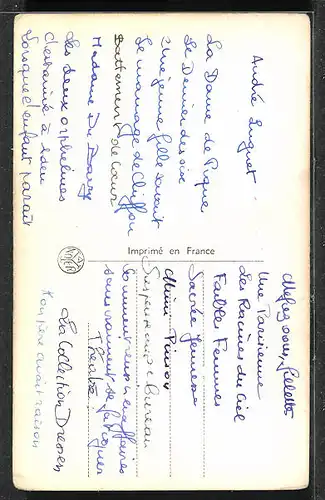 André Luguet
La Dame de Pique
Le Dernier des six
Une jeune fille savait
Le mariage de Chiffon
Battement de Cœur
Madame Du Barry
Les deux orphelines
à Aden
Lorsque l'enfant paraît
Imprimé en France
Méfiez vous, fillettes
Une Parisienne
Les Racines du Ciel
Faibles Femmes
Sacrée Jeunesse
Mimi Pinson
bureau
Comment réussir en affaires
sans vraiment se fatiguer
Théatre
La Collection Dressen
Ton père avait raison